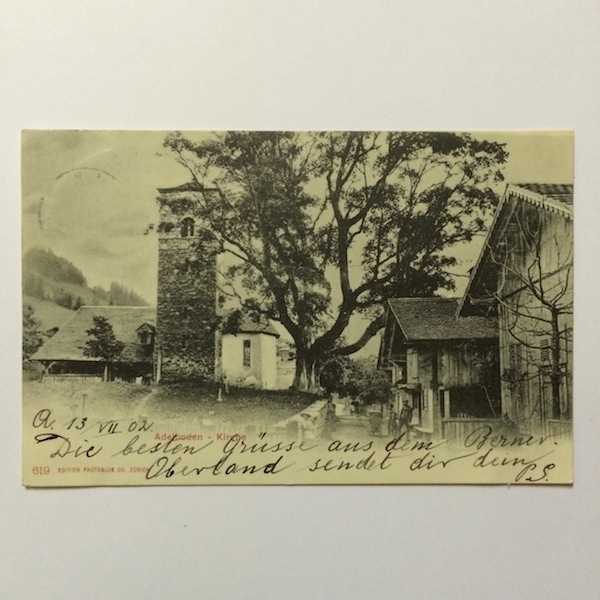 A. 13 VII 02.
Adelboden - Kirche
Die besten Grüsse aus dem Berner-
Oberland sendet dir dein
P.S.
619 EDITION PHOTOGLOB CO. ZÜRICH